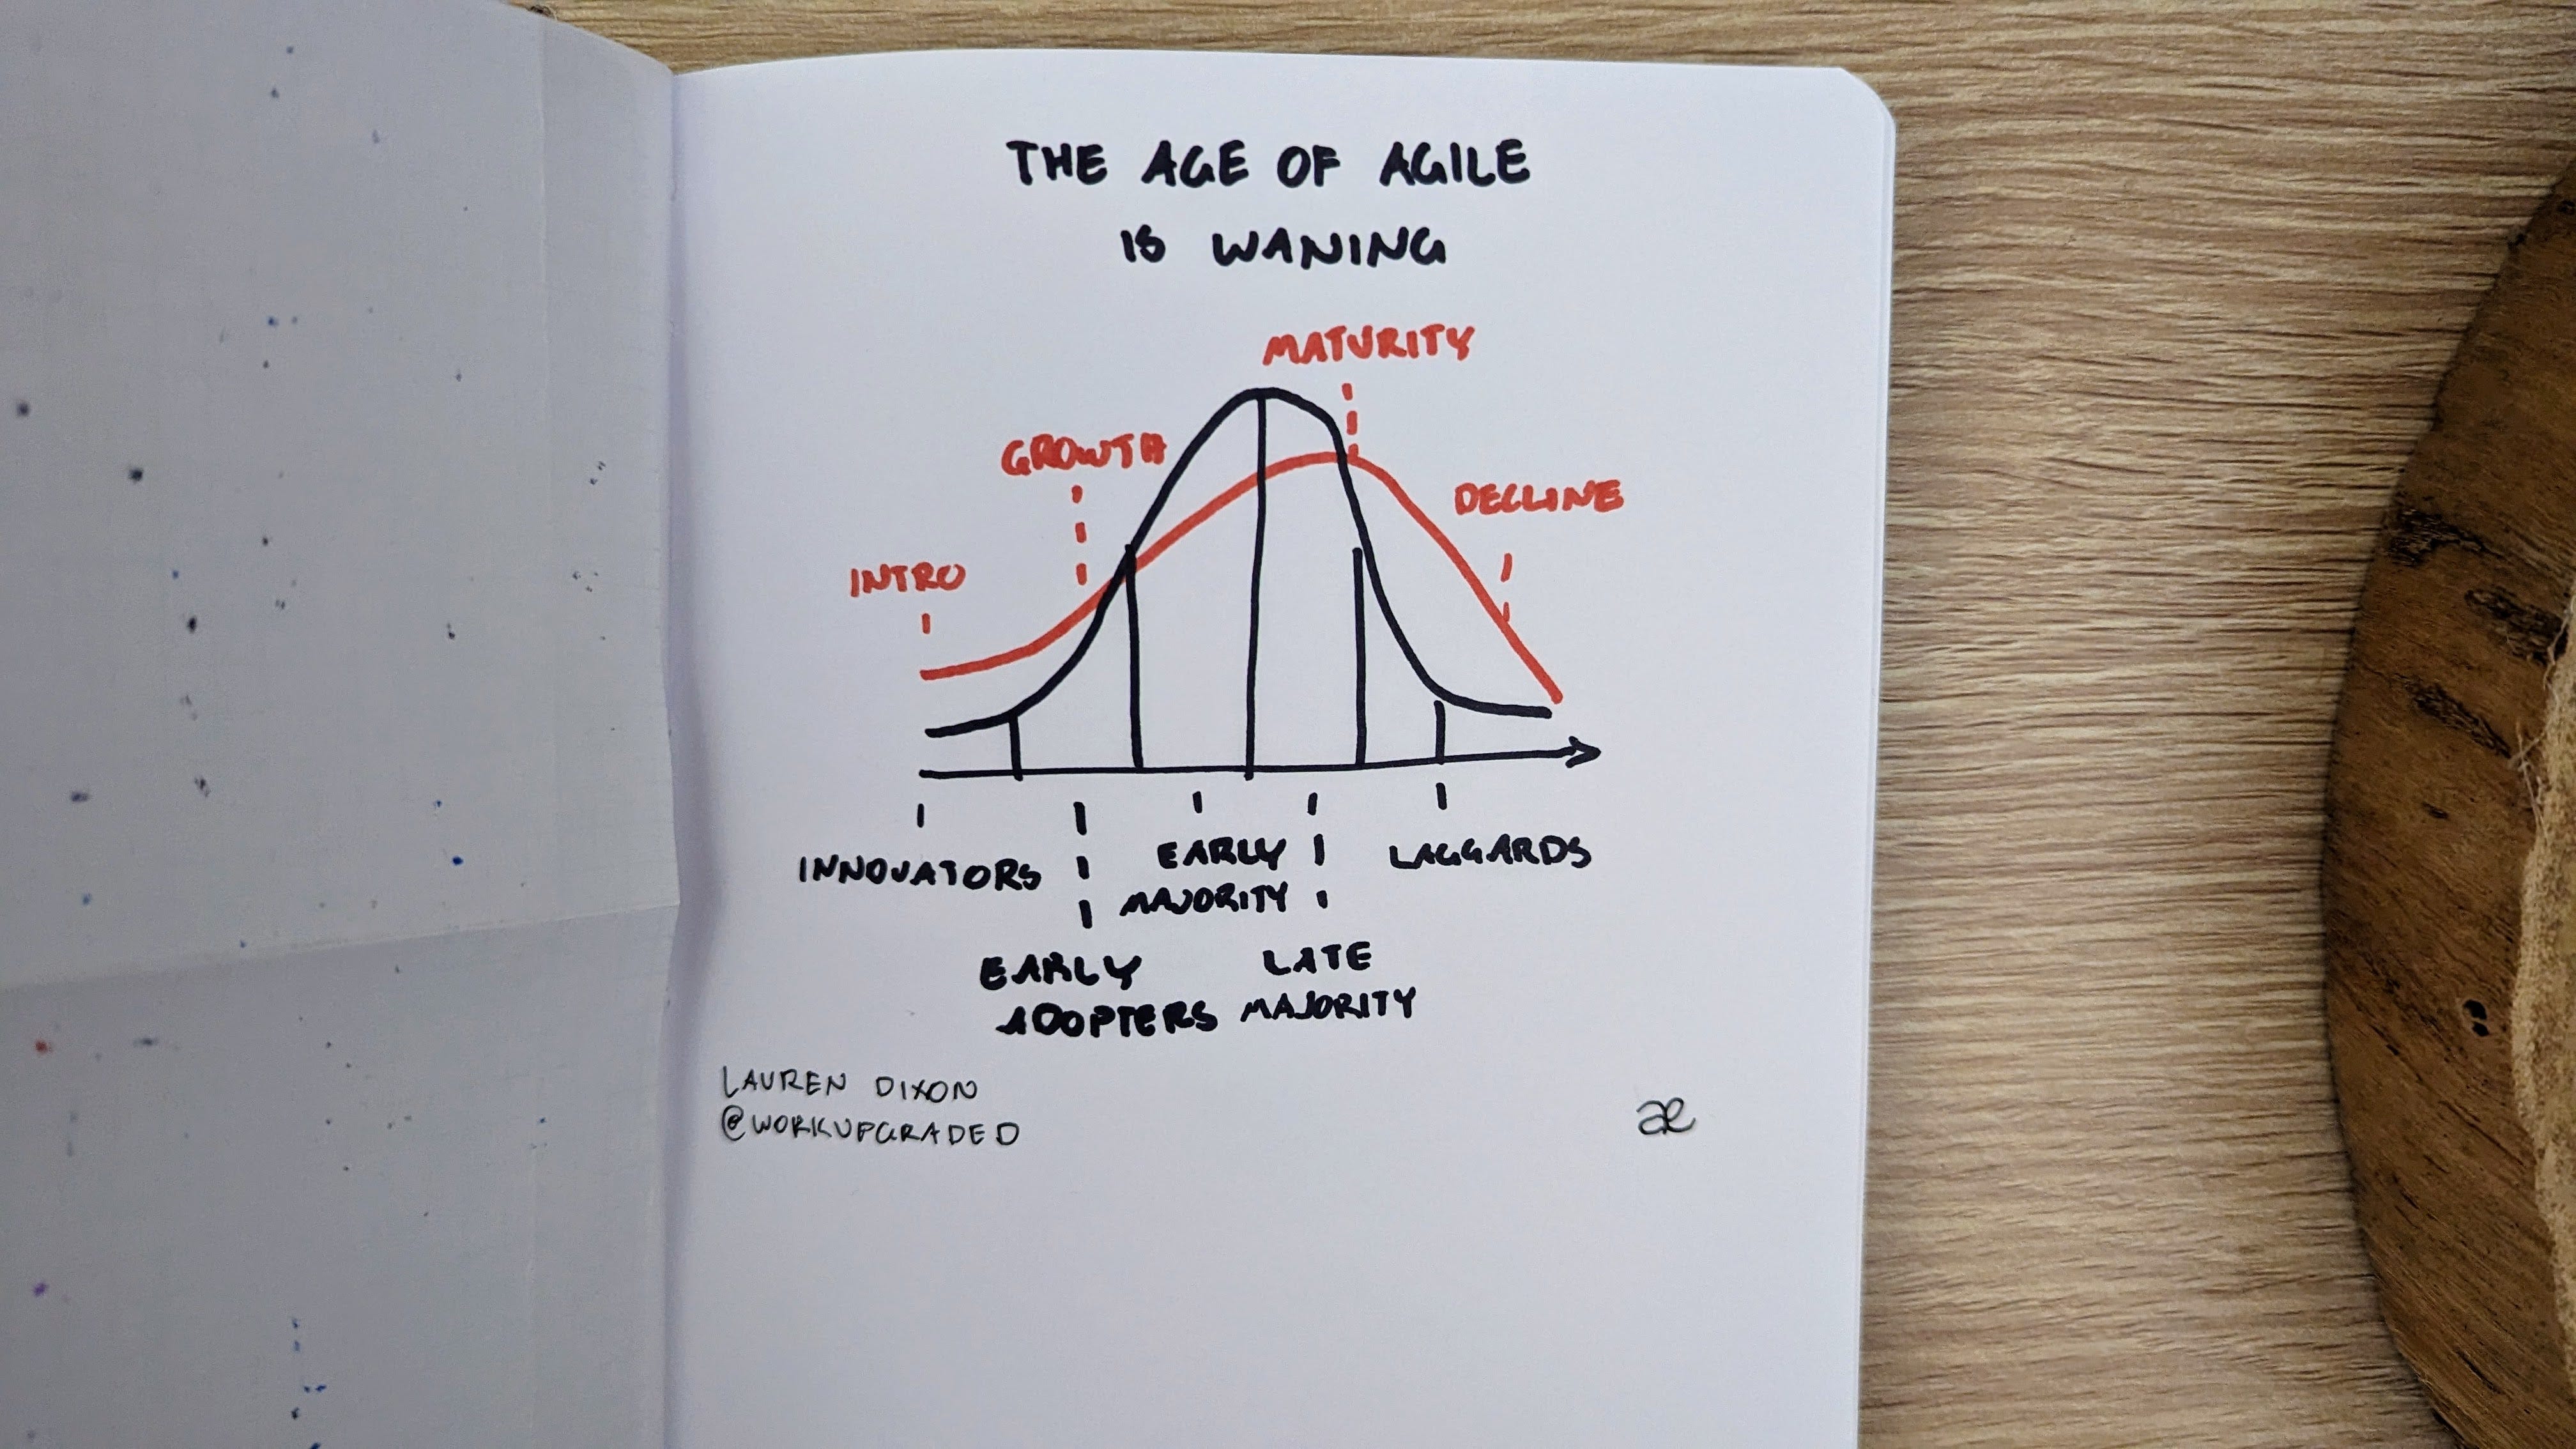 THE AGE OF AGILE
IS WANING
MATURITY
GROWTH
DECLINE
INTRO
INNOVATORS
EARLY
MAJORITY
LAGGARDS
EARLY
ADOPTERS
LATE
MAJORITY
LAUREN DIXON
@WORKUPGRADED
æ